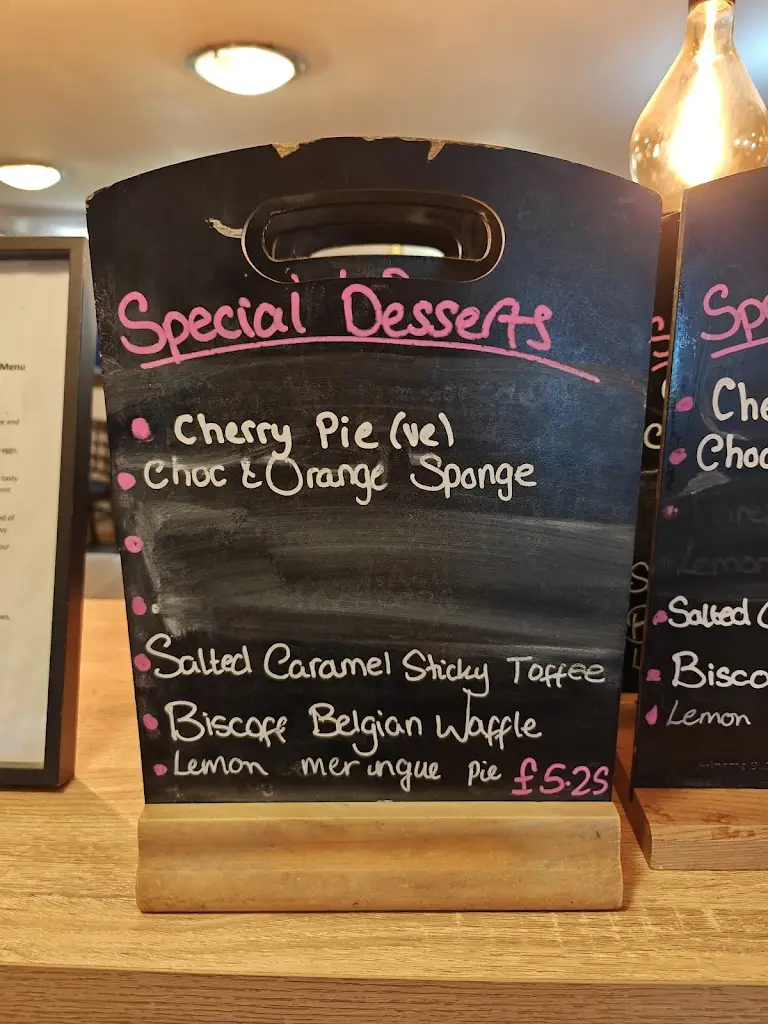 Special Desserts
Cherry Pie (ve)
Choc & Orange Sponge
Salted Caramel Sticky Toffee
Biscoff Belgian Waffle
Lemon meringue Pie £5.25
Menu
eggs.
tasty
Spe
Che
Choc
Lemon
Salted C
Bisco
Lemon